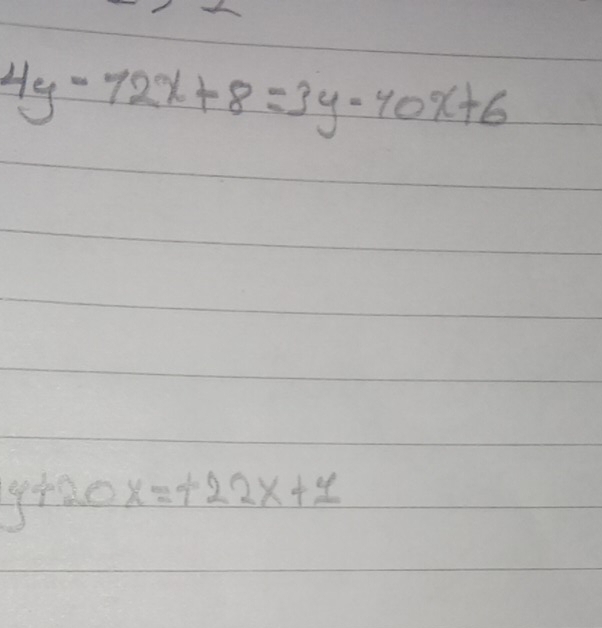 4y-12x+8=3y-10x+6
y+20x=+22x+1